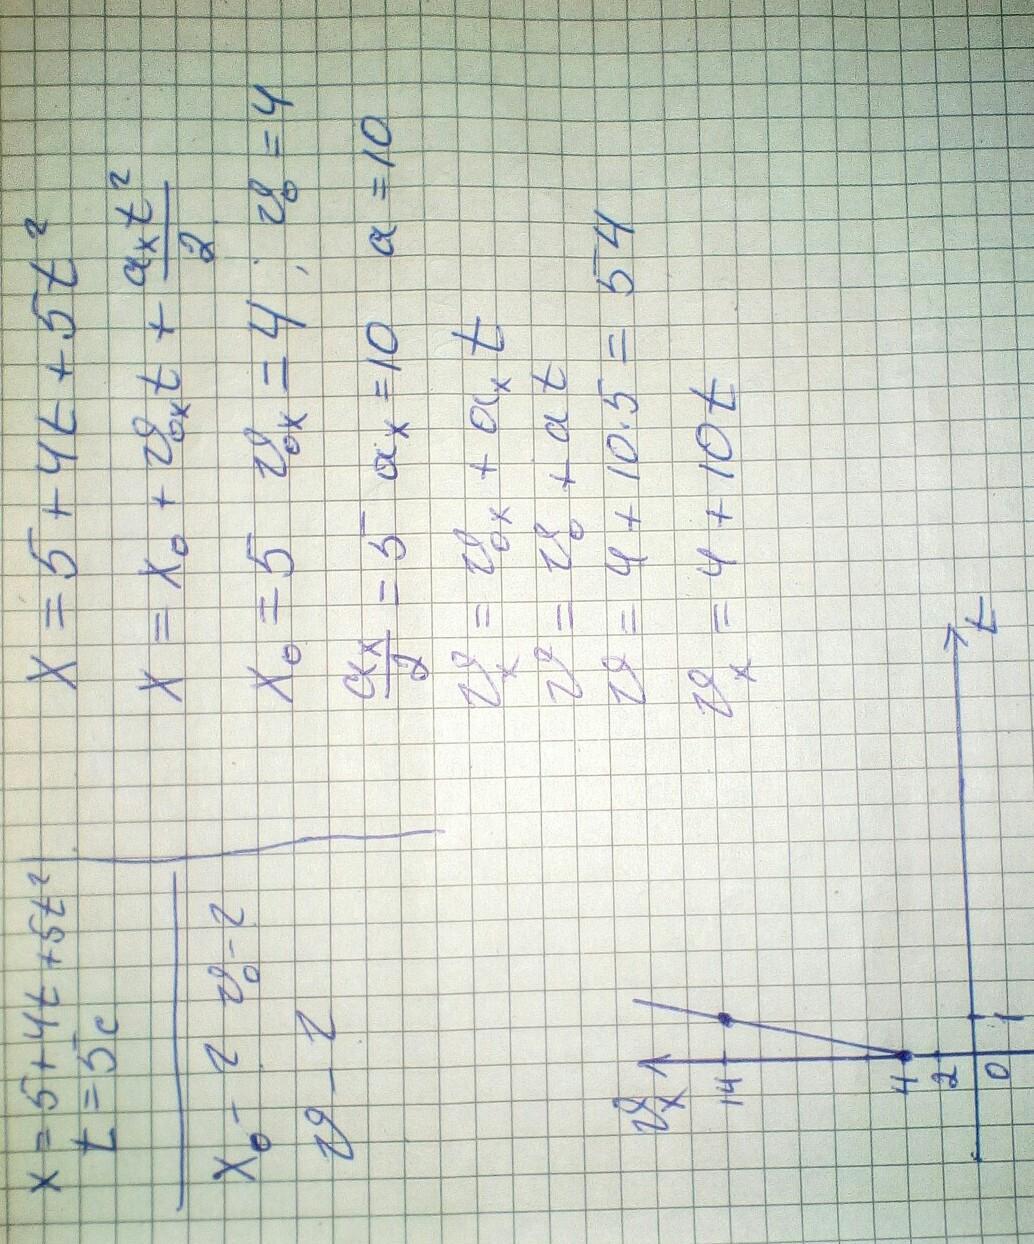 x = 5 + 4t + 5t²
t = 5c
x₀ - ? v₀ - ?
v - ?
x = 5 + 4t + 5t²
x = x₀ + v₀ₓt + aₓt²/2
x₀ = 5 v₀ₓ = 4; v₀ = 4
aₓ/2 = 5 aₓ = 10 a = 10
vₓ = v₀ₓ + aₓt
v = v₀ + at
v = 4 + 10·5 = 54
vₓ = 4 + 10t
vₓ
14
4
2
0 1 t